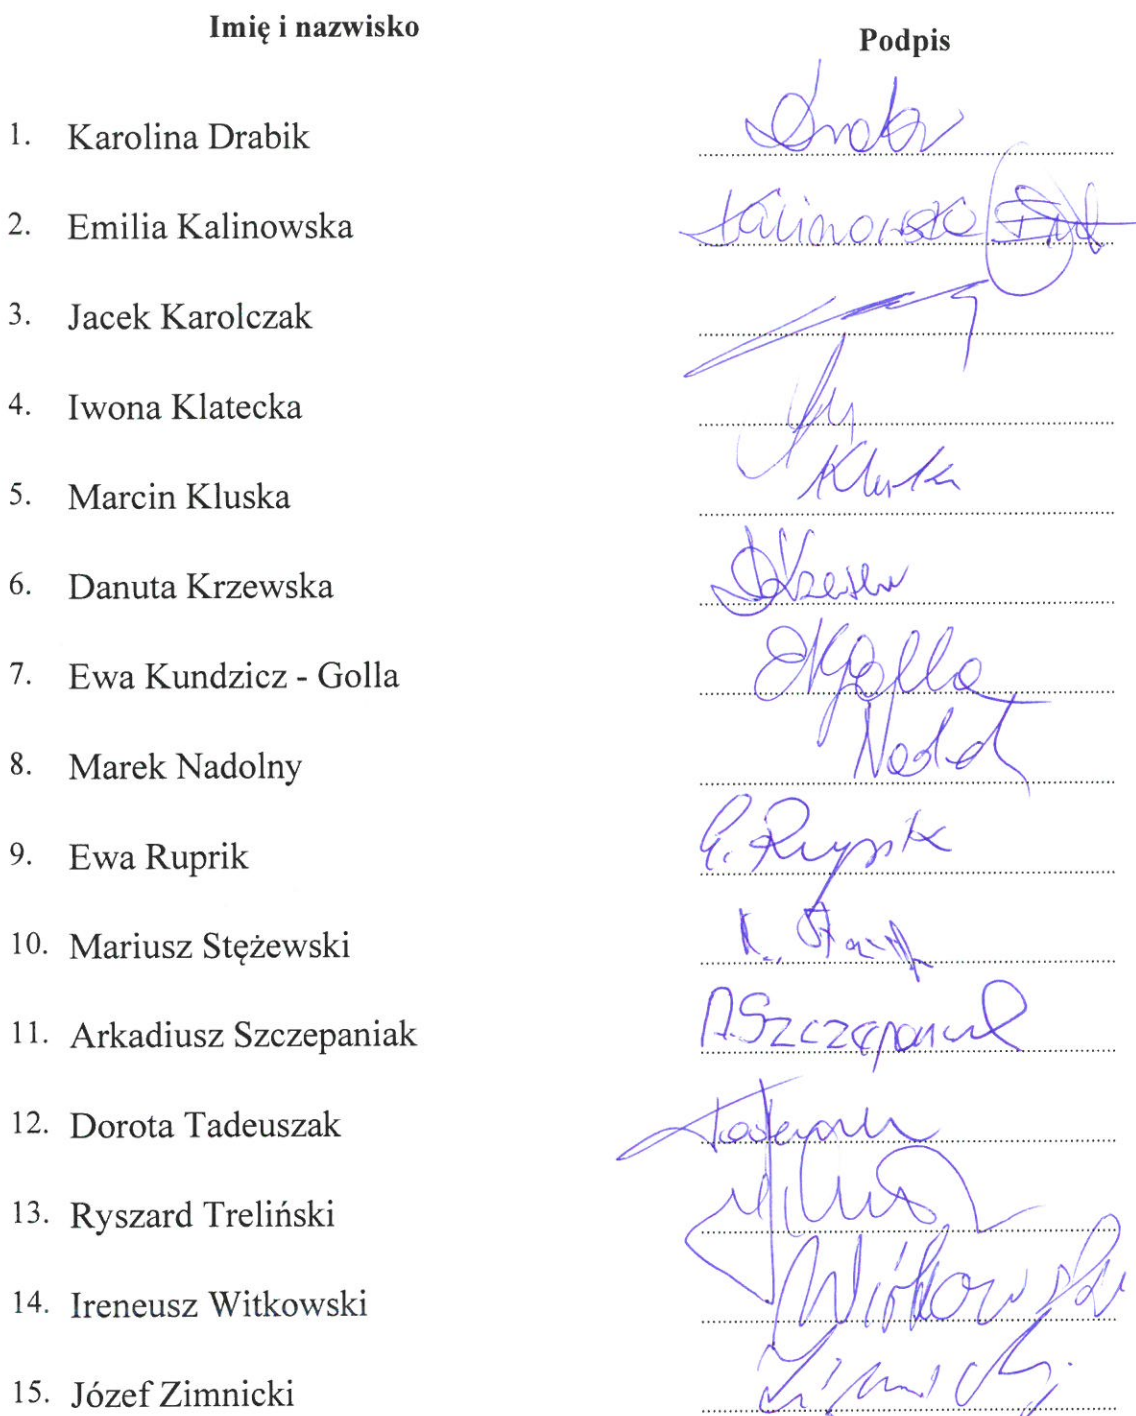 Imię i nazwisko Podpis
1. Karolina Drabik
2. Emilia Kalinowska Kalinowska
3. Jacek Karolczak
4. Iwona Klatecka
5. Marcin Kluska Kluska
6. Danuta Krzewska
7. Ewa Kundzicz - Golla Golla
8. Marek Nadolny
9. Ewa Ruprik E. Ruprik
10. Mariusz Stężewski
11. Arkadiusz Szczepaniak A. Szczepaniak
12. Dorota Tadeuszak
13. Ryszard Treliński
14. Ireneusz Witkowski Witkowski
15. Józef Zimnicki Zimnicki